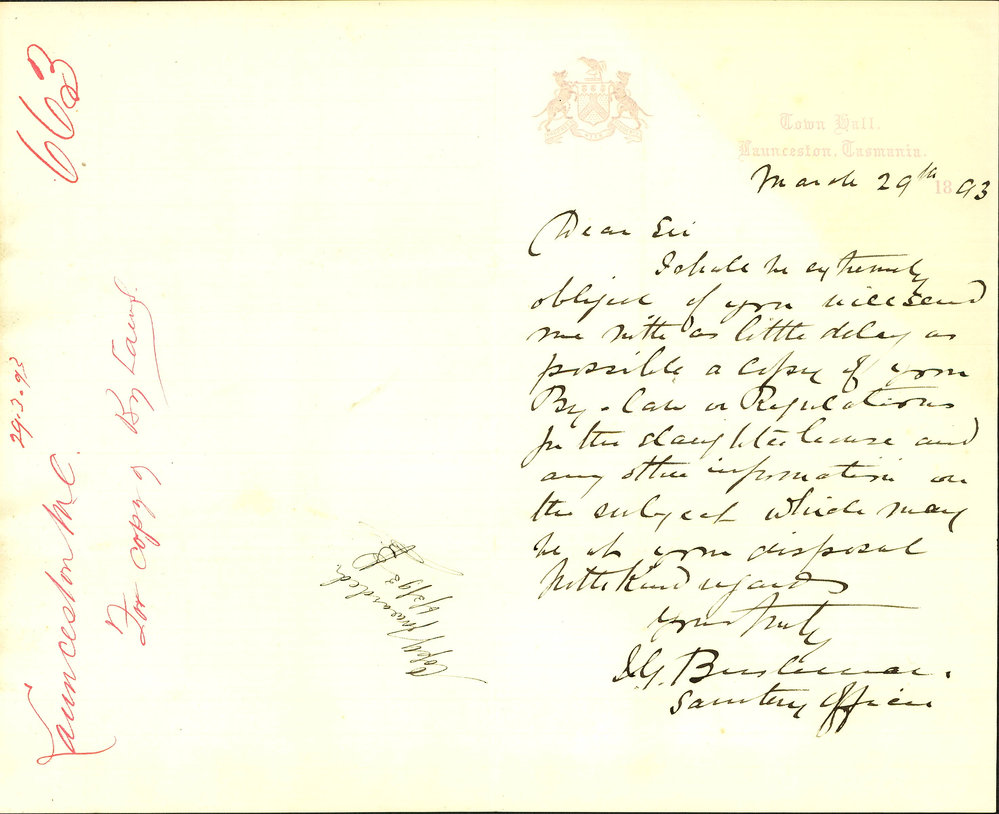 663
Launceston M.C.
29.3.93
For copy of By Laws.
Copy forwarded
Town Hall.
Launceston, Tasmania.
March 29th 1893
Dear Sir
I shall be extremely
obliged if you will send
me with as little delay as
possible a copy of your
By-Laws or Regulations
for the slaughterhouse and
any other information on
the subject which may
be at your disposal
With kind regards
yours truly
Sanitary Officer